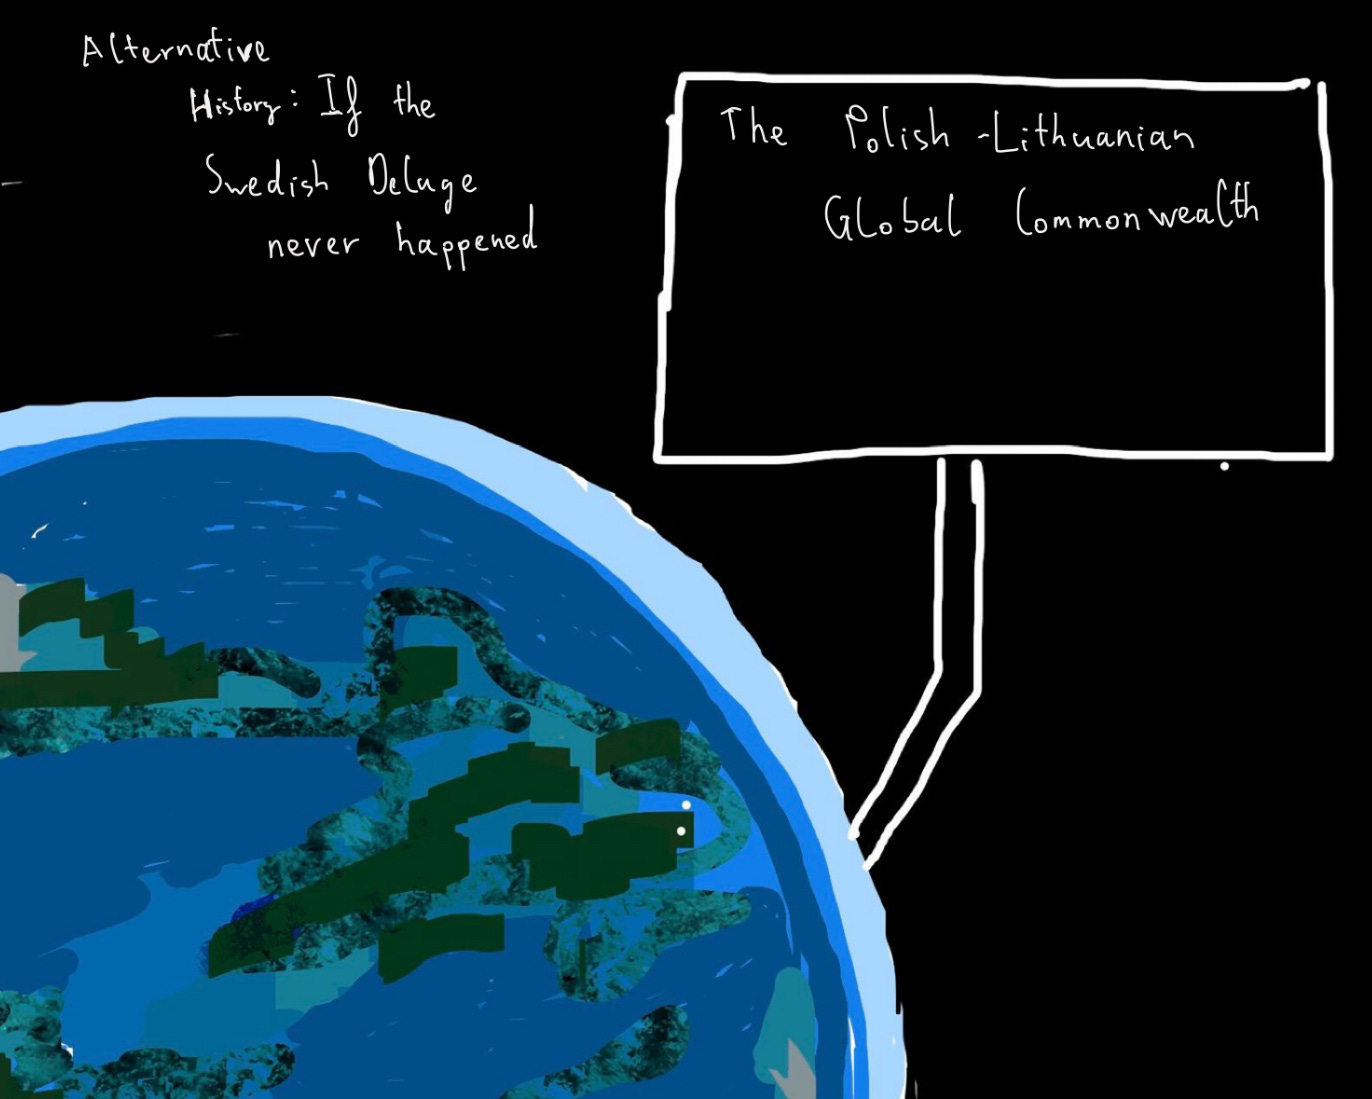 Alternative
History: If the
Swedish Deluge
never happened
The Polish-Lithuanian
Global Commonwealth